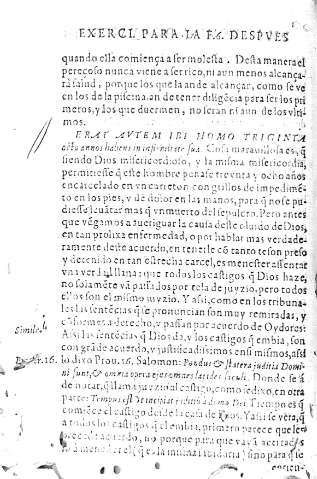 EXERCI. PARA. LA FA. DESPVES
quando ella comiença a ser molesta. Desta manera el
pereçoso nunca viene a ser rico, ni aun menos alcança-
rá salud, porque los que la an de alcançar, como se vè
en los de la piscina, an de tener diligẽcia para ser los pri-
meros, y los que duermen, no serán ni aun de los vlti-
mos.
ERAT AVTEM IBI HOMO TRIGINTA
octo annos habens in infirmitate sua. Cosa maravillosa es, q̃
siendo Dios misericordioso, y la misma misericordia,
permitiesse q̃ este hombre passasse treynta y ocho años
encarcelado en vn carreton con grillos de impedimẽ-
to en los pies, y de dolor en las manos, para q̃ no se pu-
diesse levãtar mas q̃ vn muerto del sepulcro. Pero antes
que vẽgamos a averiguar la causa deste olvido de Dios,
en tan prolixa enfermedad, o por hablar mas verdade-
ramente deste acuerdo, en tenerle cõ tanto teson preso
y detenido en tan estrecha carcel, es menester assentar
vna verdad llana: que todos los castigos q̃ Dios haze,
no solamẽte vã passados por tela de juyzio, pero todos
ellos son el mismo juyzio. Y assi, como en los tribuna-
les las sentẽcias que pronuncian son muy remiradas, y
cõformes a derecho, y passan por acuerdo de Oydores:
Simile.
Assi las sentẽcias q̃ Dios da, y los castigos q̃ embia, son
con grãde acuerdo, y justificadissimos en si mismos, assi
16. lo dixo Prou. 16. Salomon: Pondus & statera juditia Domi-
ni sunt, & omnia opera ejus omnes lapides saculi. Donde se à
de notar, q̃ llama juyzio al castigo, como se dixo, en otra
parte: Tempus est vt incipiat juditiũ à domo Dei. Tiempo es q̃
comiẽce el castigo desde la casa de Dios. Y assi se vera, q̃
a todos los castigos q̃ el embia, primero perece que les
precede acuerdo, no porque para que vaya acertado